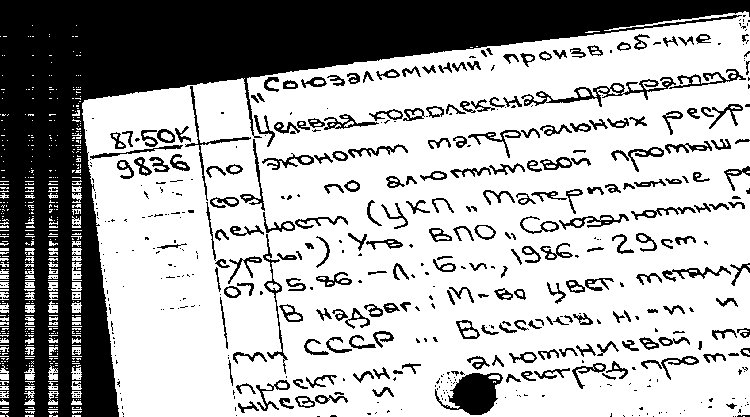 "Союзалюминий", произв. об-ние.
Целевая комплексная программа
87-50К
9836
по экономии материальных ресур-
сов ... по алюминиевой промыш-
ленности (ЦКП "Материальные ре
сурсы"): Утв. ВПО "Союзалюминий"
07.05.86. - Л.: Б.и., 1986. - 29 см.
В надзаг.: М-во цвет. металлур
гии СССР ... Всесоюзн. н.-и. и
проект. ин-т алюминиевой, ма
ниевой и электрод. пром-с